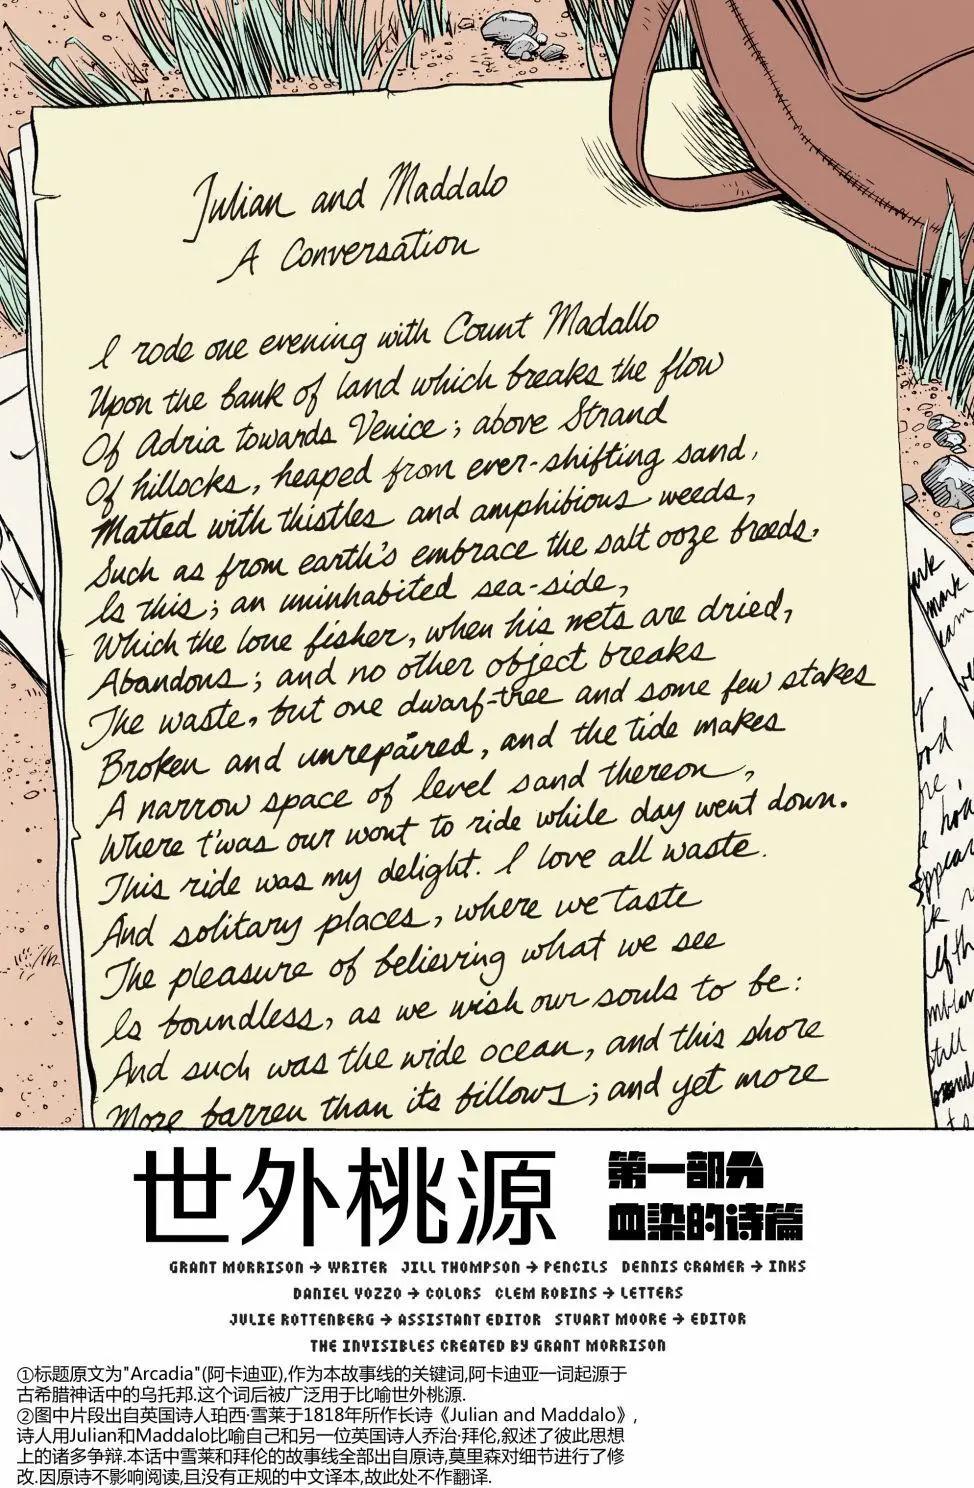 Julian and Maddalo
A Conversation
I rode one evening with Count Madallo
Upon the bank of land which breaks the flow
Of Adria towards Venice; above Strand
Of hillocks, heaped from ever-shifting sand,
Matted with thistles and amphibious weeds,
Such as from earth's embrace the salt ooze breeds,
Is this; an uninhabited sea-side,
Which the lone fisher, when his nets are dried,
Abandons; and no other object breaks
The waste, but one dwarf-tree and some few stakes
Broken and unrepaired, and the tide makes
A narrow space of level sand thereon,
Where t'was our wont to ride while day went down.
This ride was my delight. I love all waste.
And solitary places, where we taste
The pleasure of believing what we see
Is boundless, as we wish our souls to be:
And such was the wide ocean, and this shore
More barren than its billows; and yet more
mark
still
世外桃源
第一部分
血染的诗篇
GRANT MORRISON → WRITER JILL THOMPSON → PENCILS DENNIS CRAMER → INKS
DANIEL VOZZO → COLORS CLEM ROBINS → LETTERS
JULIE ROTTENBERG → ASSISTANT EDITOR STUART MOORE → EDITOR
THE INVISIBLES CREATED BY GRANT MORRISON
①标题原文为"Arcadia"(阿卡迪亚),作为本故事线的关键词,阿卡迪亚一词起源于
古希腊神话中的乌托邦.这个词后被广泛用于比喻世外桃源.
②图中片段出自英国诗人珀西·雪莱于1818年所作长诗《Julian and Maddalo》,
诗人用Julian和Maddalo比喻自己和另一位英国诗人乔治·拜伦,叙述了彼此思想
上的诸多争辩.本话中雪莱和拜伦的故事线全部出自原诗,莫里森对细节进行了修
改.因原诗不影响阅读,且没有正规的中文译本,故此处不作翻译.